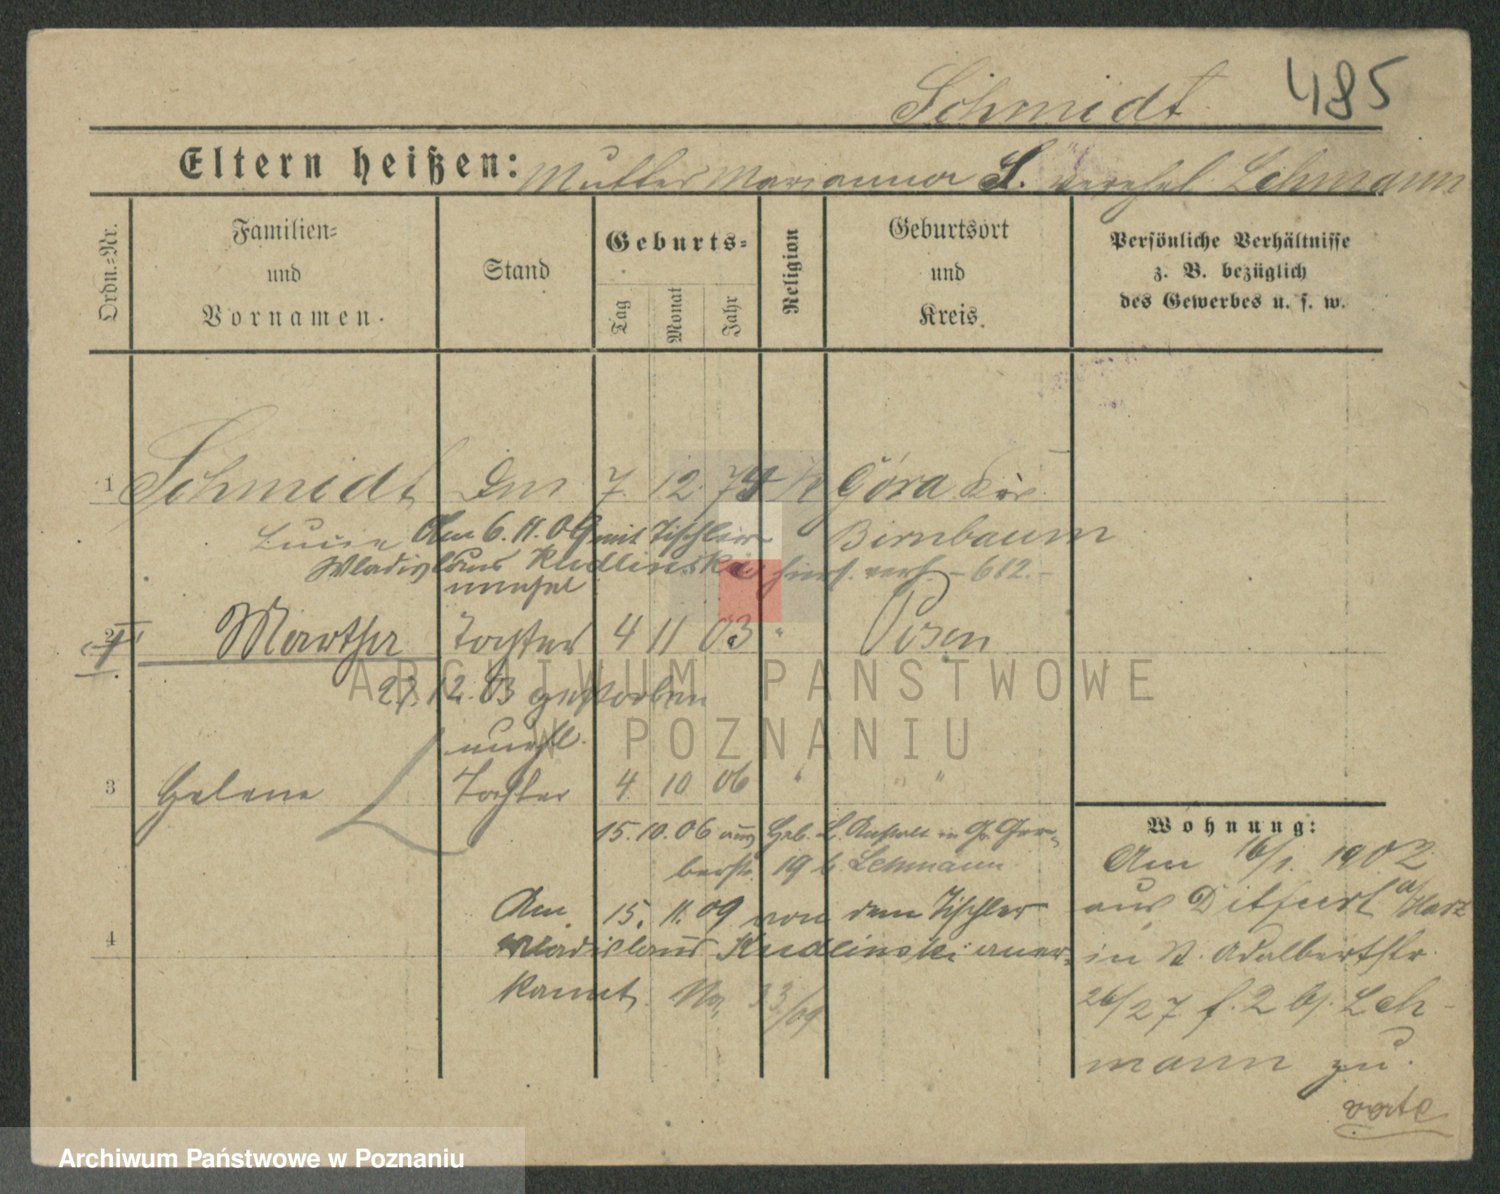 Schmidt 485
Eltern heißen: Mutter Marianna S. verehel. Lehmann
Ordn.-Nr.
Familien-
und
Vornamen.
Stand
Geburts-
Tag
Monat
Jahr
Religion
Geburtsort
und
Kreis.
Persönliche Verhältnisse
z. B. bezüglich
des Gewerbes u. s. w.
1 Schmidt 7. 12. 74 k Góra Krs.
Lucie Am 6. 11. 09 mit Tischler Birnbaum
Wladislaus Kudlinski hies. verh. – 612. –
unehel
2 Martha Tochter 4 11 03 " Posen
27. 12. 03 gestorben
ARCHIWUM PAŃSTWOWE
W POZNANIU
unehl.
3 Helene Tochter 4 10 06 " "
15. 10. 06 aus Geb. L. Anstalt in Gr. Ger-
berstr. 19 b Lehmann
Am 15. 11. 09 von dem Tischler
4 Wladislaus Kudlinski aner-
kannt. No. 33/09
Wohnung:
Am 16/1. 1902
aus Ditfurt a/Harz
in St. Adalbertstr.
26/27 f. 2 b. Leh-
mann zu.
verte
Archiwum Państwowe w Poznaniu